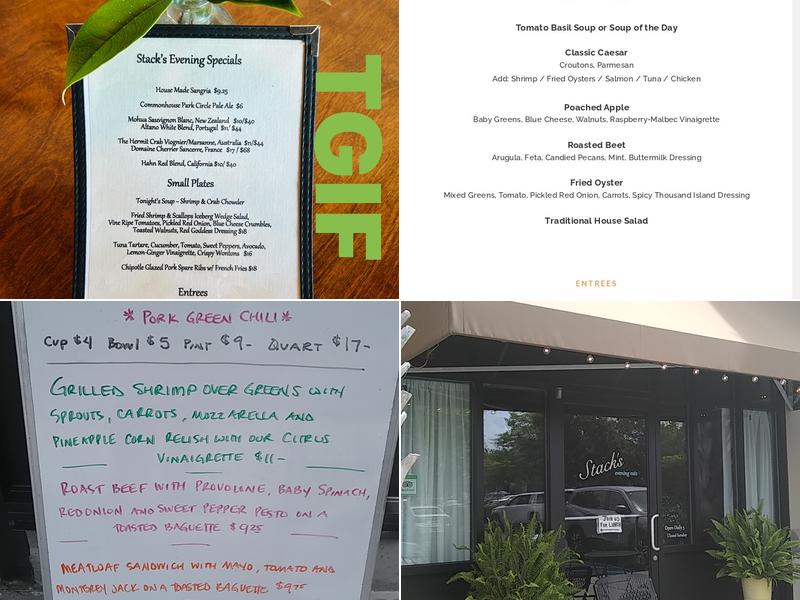 Stack's Evening Specials
House Made Sangria $9.25
Commonhouse Park Circle Pale Ale $6
Mohua Sauvignon Blanc, New Zealand $10/$40
Altano White Blend, Portugal $11/ $44
The Hermit Crab Viognier/Marsanne, Australia $11/$44
Domaine Cherrier Sancerre, France $17 / $68
Hahn Red Blend, California $10/ $40
Small Plates
Tonight's Soup ~ Shrimp & Crab Chowder
Fried Shrimp & Scallops Iceberg Wedge Salad,
Vine Ripe Tomatoes, Pickled Red Onion, Blue Cheese Crumbles,
Toasted Walnuts, Red Goddess Dressing $18
Tuna Tartare, Cucumber, Tomato, Sweet Peppers, Avocado,
Lemon-Ginger Vinaigrette, Crispy Wontons $16
Chipotle Glazed Pork Spare Ribs w/ French Fries $18
Entrees
TGIF
Tomato Basil Soup or Soup of the Day
Classic Caesar
Croutons, Parmesan
Add: Shrimp / Fried Oysters / Salmon / Tuna / Chicken
Poached Apple
Baby Greens, Blue Cheese, Walnuts, Raspberry-Malbec Vinaigrette
Roasted Beet
Arugula, Feta, Candied Pecans, Mint, Buttermilk Dressing
Fried Oyster
Mixed Greens, Tomato, Pickled Red Onion, Carrots, Spicy Thousand Island Dressing
Traditional House Salad
ENTREES
* PORK GREEN CHILI *
CUP $4 BOWL $5 PINT $9- QUART $17-
GRILLED SHRIMP OVER GREENS WITH
SPROUTS, CARROTS, MOZZARELLA AND
PINEAPPLE CORN RELISH WITH OUR CITRUS
VINAIGRETTE $11-
ROAST BEEF WITH PROVOLONE, BABY SPINACH,
RED ONION AND SWEET PEPPER PESTO ON A
TOASTED BAGUETTE $9.25
MEATLOAF SANDWICH WITH MAYO, TOMATO AND
MONTEREY JACK ON A TOASTED BAGUETTE $9.75
Stack's
evening eats
JOIN US
FOR LUNCH
Open Daily 5
Closed Sunday